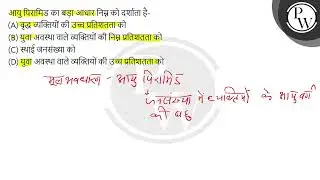 आयु पिरामिड का बड़ा आधार निम्न को दर्शाता है-
A) वृद्ध व्यक्तियों की उच्च प्रतिशतता को
B) युवा अवस्था वाले व्यक्तियों की निम्न प्रतिशतता को
C) स्थाई जनसंख्या को
D) युवा अवस्था वाले व्यक्तियों की उच्च प्रतिशतता को
मूल अवधारणा - आयु पिरामिड
जनसंख्या में व्यक्तियों के आयु वर्ग
की